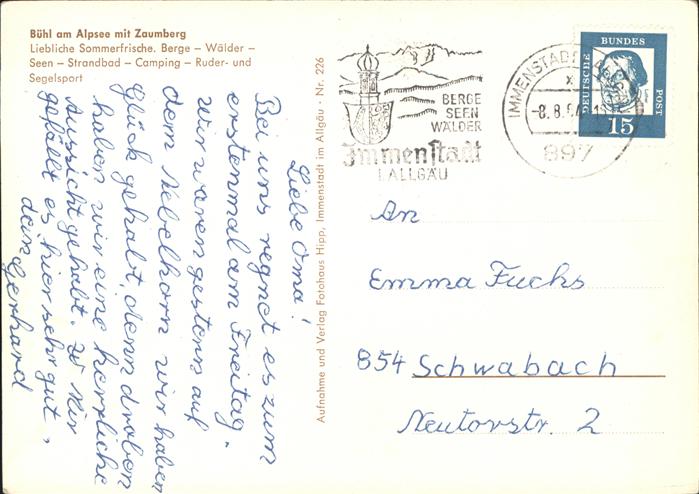 Bühl am Alpsee mit Zaumberg
Liebliche Sommerfrische. Berge – Wälder –
Seen – Strandbad – Camping – Ruder- und
Segelsport
Liebe Oma!
Bei uns regnet es zum
erstenmal am Freitag.
Wir waren gestern auf
dem Nebelhorn wir haben
Glück gehabt, denn droben
haben wir eine herrliche
Aussicht gehabt. Mir
gefällt es hier sehr gut,
dein
Gerhard
Aufnahme und Verlag Fotohaus Hipp, Immenstadt im Allgäu · Nr. 226
BERGE
SEEN
WÄLDER
Immenstadt
I. ALLGÄU
IMMENSTADT
-8.8.
897
DEUTSCHE
BUNDES
POST
15
An
Emma Fuchs
854 Schwabach
Neutorstr. 2